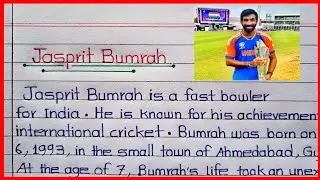 Jasprit Bumrah
Jasprit Bumrah is a fast bowler
for India. He is known for his achievemen
international cricket. Bumrah was born on
6, 1993, in the small town of Ahmedabad, Gu
At the age of 7, Bumrah's life took an unex